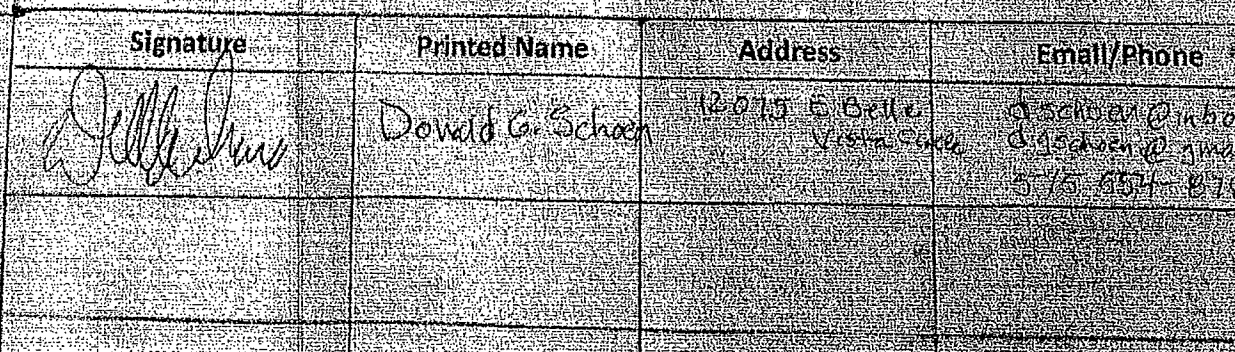 Signature Printed Name Address Email/Phone
Donald G. Schoen
12075 E Belle
Vista Circle
dschoen@inbo
dgschoen@gma